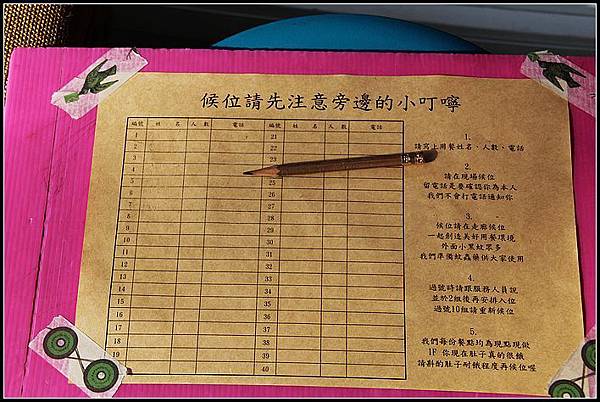 候位請先注意旁邊的小叮嚀
編號 姓 名 人數 電話 編號 姓 名 人數 電話
1 21
2 22
3 23
4
5 25
6 26
7 27
8 28
9 29
10 30
11 31
12 32
13 33
14 34
15 35
16 36
17 37
18 38
19 39
20 40
1.
請寫上用餐姓名、人數、電話
2.
請在現場候位
留電話是要確認你為本人
我們不會打電話通知你
3.
候位請在走廊候位
一起創造美好用餐環境
外面小黑蚊眾多
我們準備蚊蟲藥供大家使用
4.
過號時請跟服務人員說
並於2組後再安排入位
過號10組請重新候位
5.
我們每份餐點均為現點現做
IF 你現在肚子真的很餓
請斟酌肚子耐餓程度再候位喔